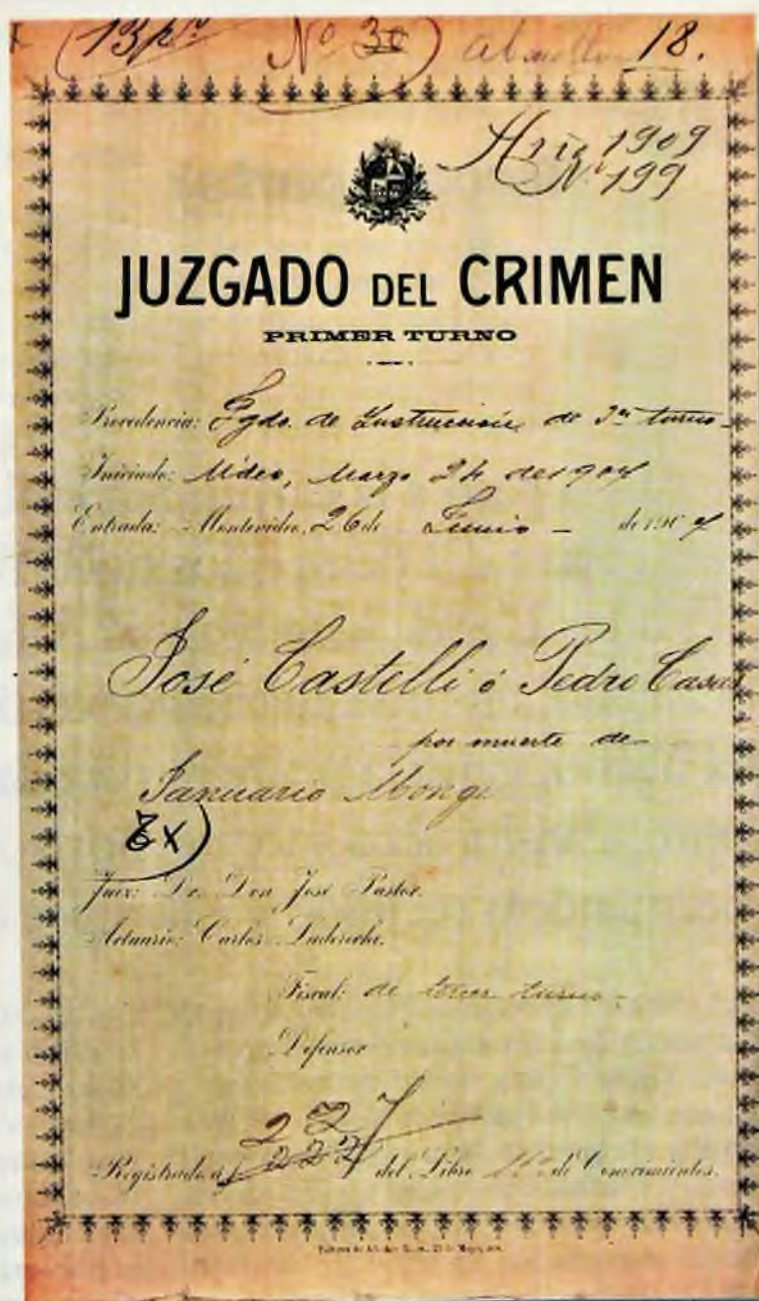 (13 pza No 30) 18.
Año 1909
No 199
JUZGADO DEL CRIMEN
PRIMER TURNO
Procedencia: Jgdo. de Instrucción de 3er turno.
Iniciado: Mdeo, Marzo 24 de 1904
Entrada: Montevideo, 26 de Junio de 190
José Castelli ó Pedro Casas
por muerte de
Januario Monge
Juez: Dr. Don José Pastor.
Actuario: Carlos
Fiscal: de tercer turno
Defensor
227
Registrado á f 222 del Libro de Conocimientos.